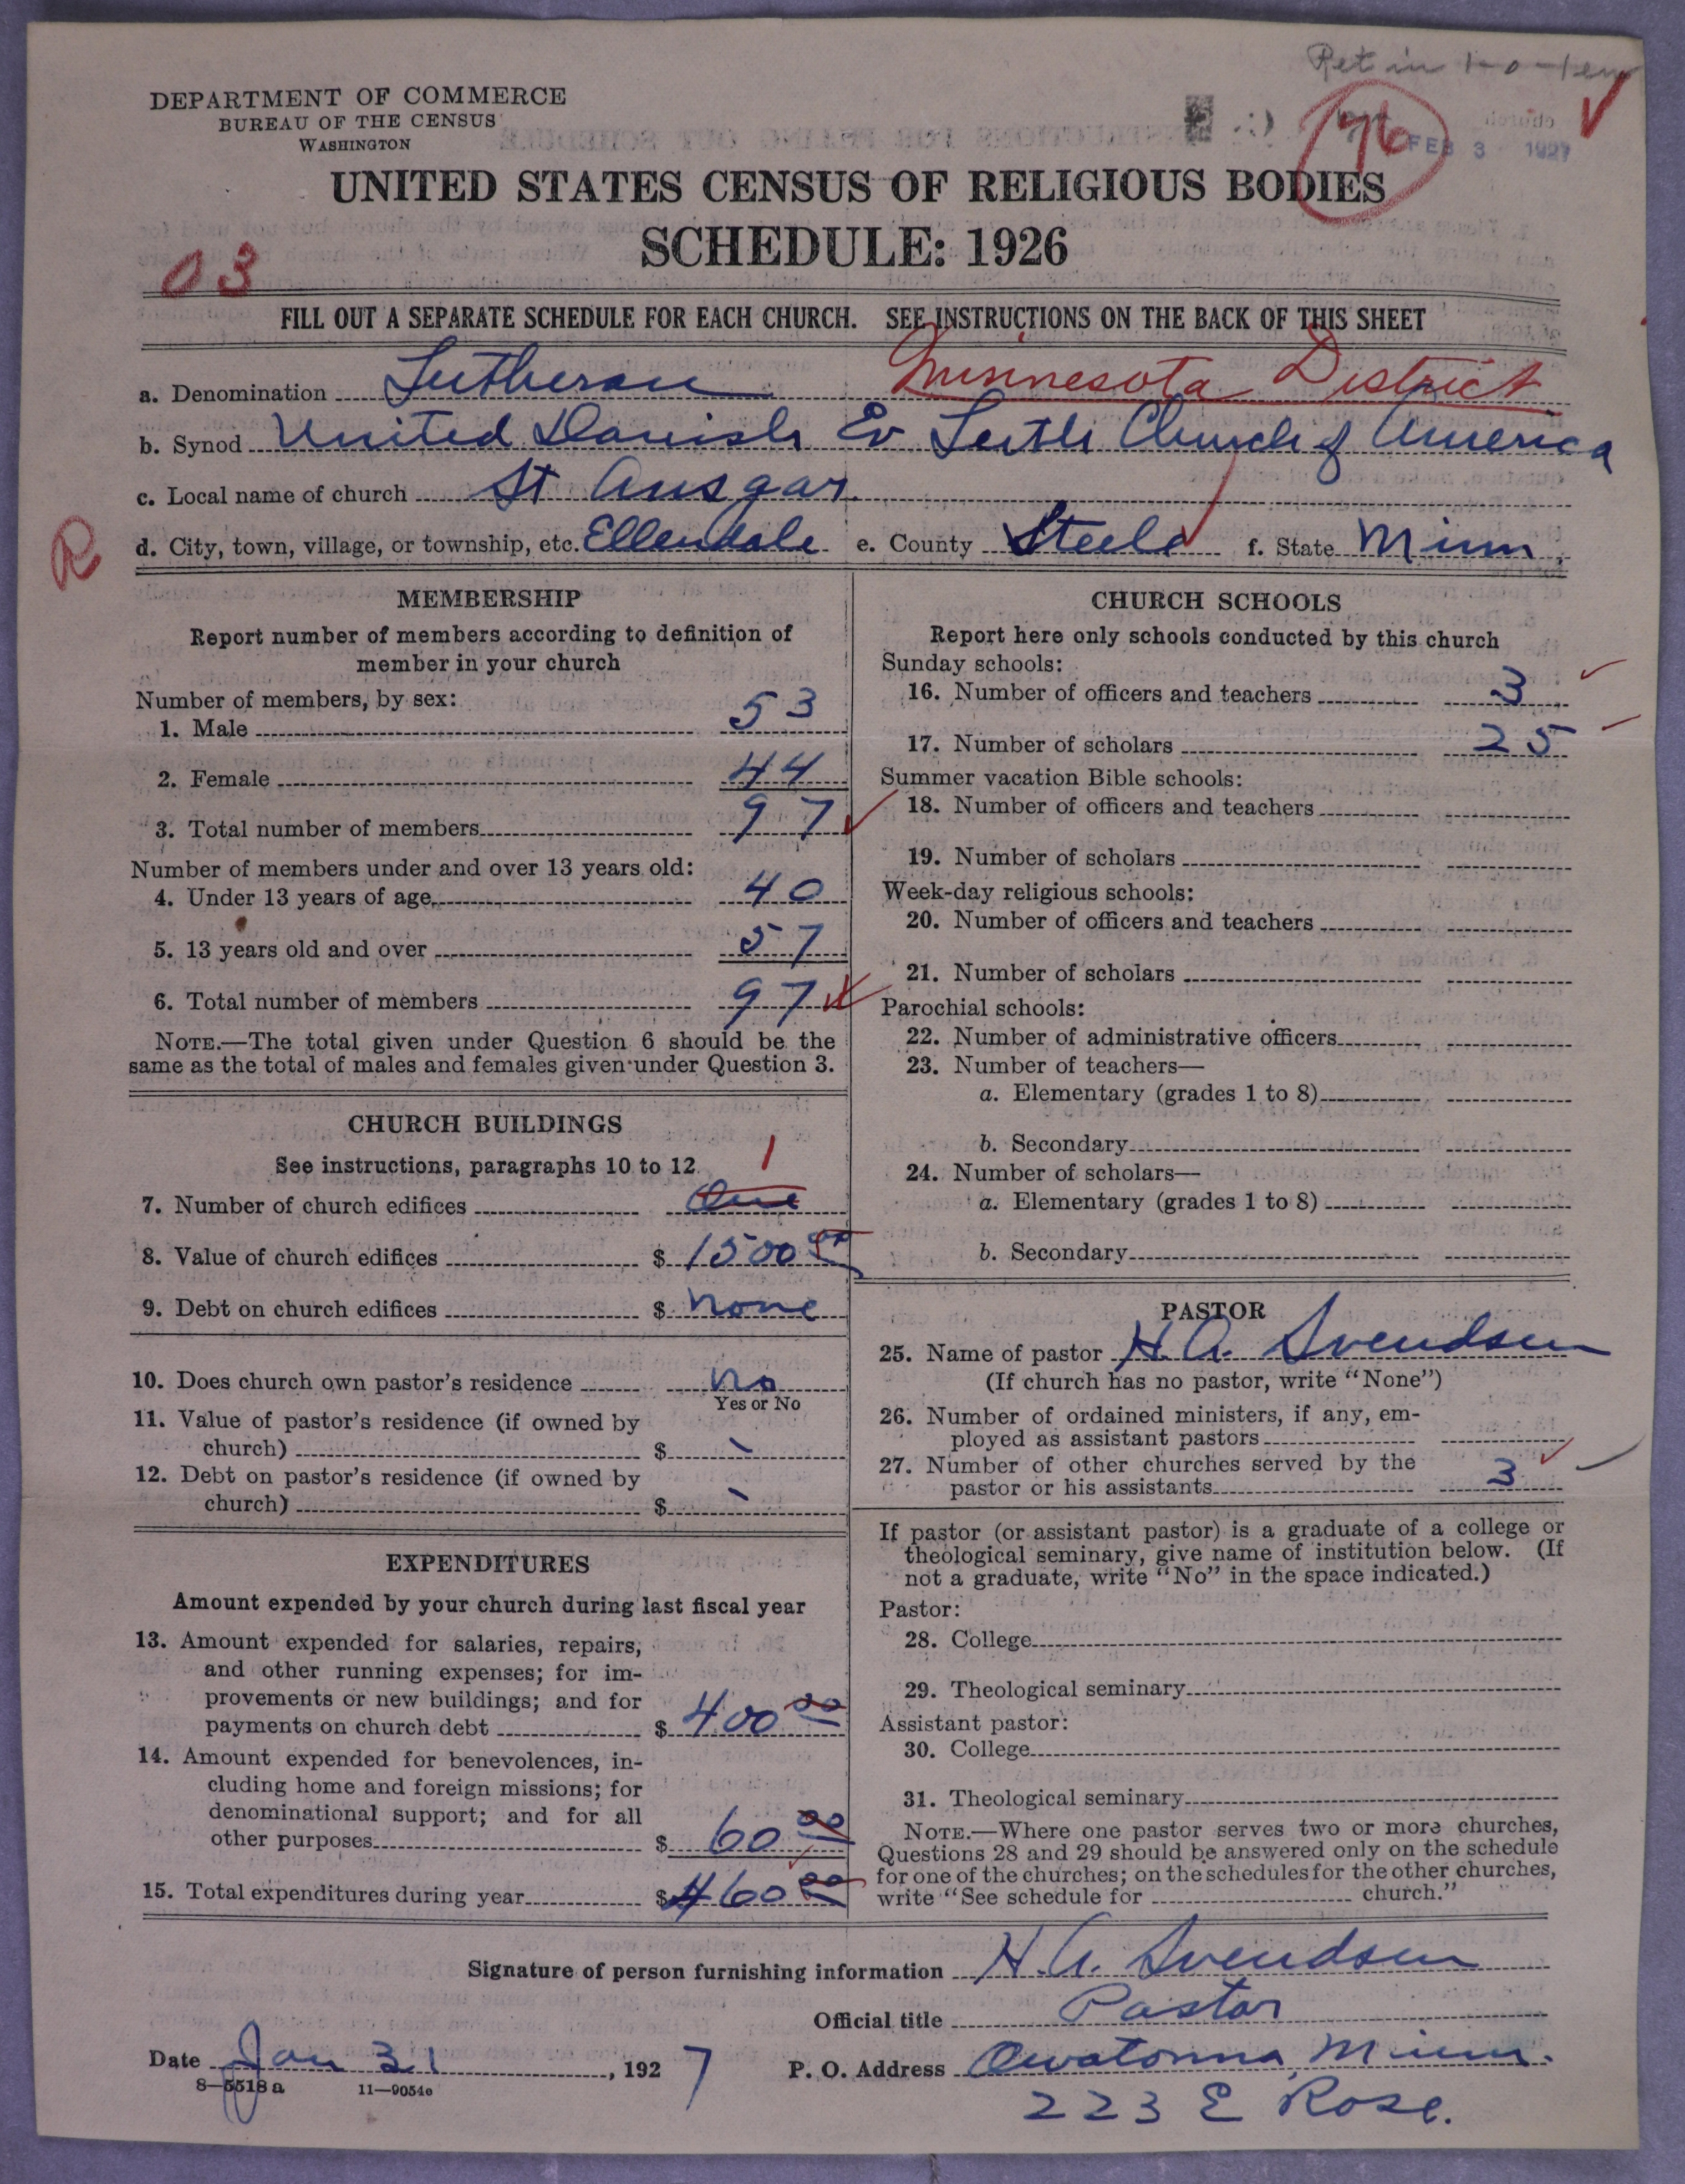 Ret in
DEPARTMENT OF COMMERCE
BUREAU OF THE CENSUS
WASHINGTON
76
FEB 3 1927
UNITED STATES CENSUS OF RELIGIOUS BODIES
SCHEDULE: 1926
03
FILL OUT A SEPARATE SCHEDULE FOR EACH CHURCH. SEE INSTRUCTIONS ON THE BACK OF THIS SHEET
a. Denomination Lutheran Minnesota District
b. Synod United Danish Ev Luth Church of America
c. Local name of church St Ansgar
R
d. City, town, village, or township, etc. Ellendale e. County Steele f. State Minn
MEMBERSHIP
Report number of members according to definition of
member in your church
Number of members, by sex:
1. Male 53
2. Female 44
3. Total number of members 97
Number of members under and over 13 years old:
4. Under 13 years of age 40
5. 13 years old and over 57
6. Total number of members 97
NOTE.—The total given under Question 6 should be the
same as the total of males and females given under Question 3.
CHURCH BUILDINGS
See instructions, paragraphs 10 to 12.
1
7. Number of church edifices One
8. Value of church edifices $ 1500 00
9. Debt on church edifices $ none
10. Does church own pastor's residence no
Yes or No
11. Value of pastor's residence (if owned by
church) $ -
12. Debt on pastor's residence (if owned by
church) $ -
EXPENDITURES
Amount expended by your church during last fiscal year
13. Amount expended for salaries, repairs,
and other running expenses; for im-
provements or new buildings; and for
payments on church debt $ 400 00
14. Amount expended for benevolences, in-
cluding home and foreign missions; for
denominational support; and for all
other purposes $ 60 00
15. Total expenditures during year $ 460 00
CHURCH SCHOOLS
Report here only schools conducted by this church
Sunday schools:
16. Number of officers and teachers 3
17. Number of scholars 25
Summer vacation Bible schools:
18. Number of officers and teachers
19. Number of scholars
Week-day religious schools:
20. Number of officers and teachers
21. Number of scholars
Parochial schools:
22. Number of administrative officers
23. Number of teachers—
a. Elementary (grades 1 to 8)
b. Secondary
24. Number of scholars—
a. Elementary (grades 1 to 8)
b. Secondary
PASTOR
25. Name of pastor H. A. Svendsen
(If church has no pastor, write "None")
26. Number of ordained ministers, if any, em-
ployed as assistant pastors
27. Number of other churches served by the
pastor or his assistants 3
If pastor (or assistant pastor) is a graduate of a college or
theological seminary, give name of institution below. (If
not a graduate, write "No" in the space indicated.)
Pastor:
28. College
29. Theological seminary
Assistant pastor:
30. College
31. Theological seminary
NOTE.—Where one pastor serves two or more churches,
Questions 28 and 29 should be answered only on the schedule
for one of the churches; on the schedules for the other churches,
write "See schedule for church."
Signature of person furnishing information H. A. Svendsen
Official title Pastor
Date Jan 31, 1927 P. O. Address Owatonna, Minn.
8—5518 a 11—9054c
223 E Rose.